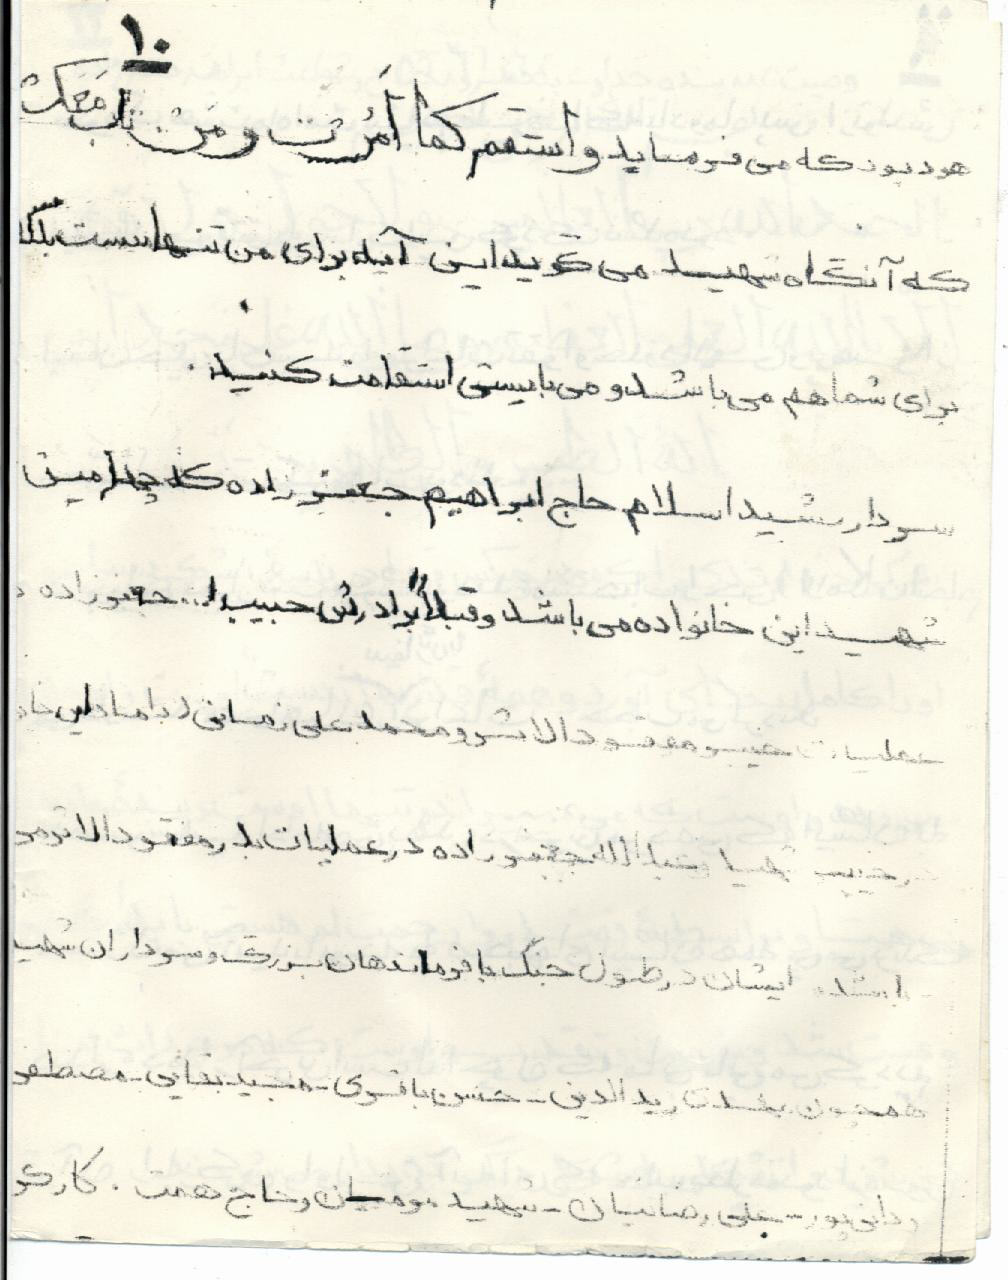 ۱۰
هود بود که می فرماید و استقم کما اُمرت و من تاب معک
که آنگاه شهید می گوید این آیه برای من تنها نیست بلکه
برای شما هم می باشد و می بایستی استقامت کنید.
سردار رشید اسلام حاج ابراهیم جعفرزاده که چهارمین
شهید این خانواده می باشد و قبلاً برادرش حبیب ا... جعفرزاده د
عملیات خیبر مفقودالاثر و محمد علی داماد این خا
حبیب شهید و عبدالله جعفرزاده در عملیات بدر مفقودالاثر می
باشد. ایشان در طول جنگ با فرماندهان بزرگ و سرداران شهید
همچون زین الدین - حسن باقری - مجید بقائی - مصطفی
ردانی پور - علی رضائیان - شهید مومنیان و حاج همت . کار کر